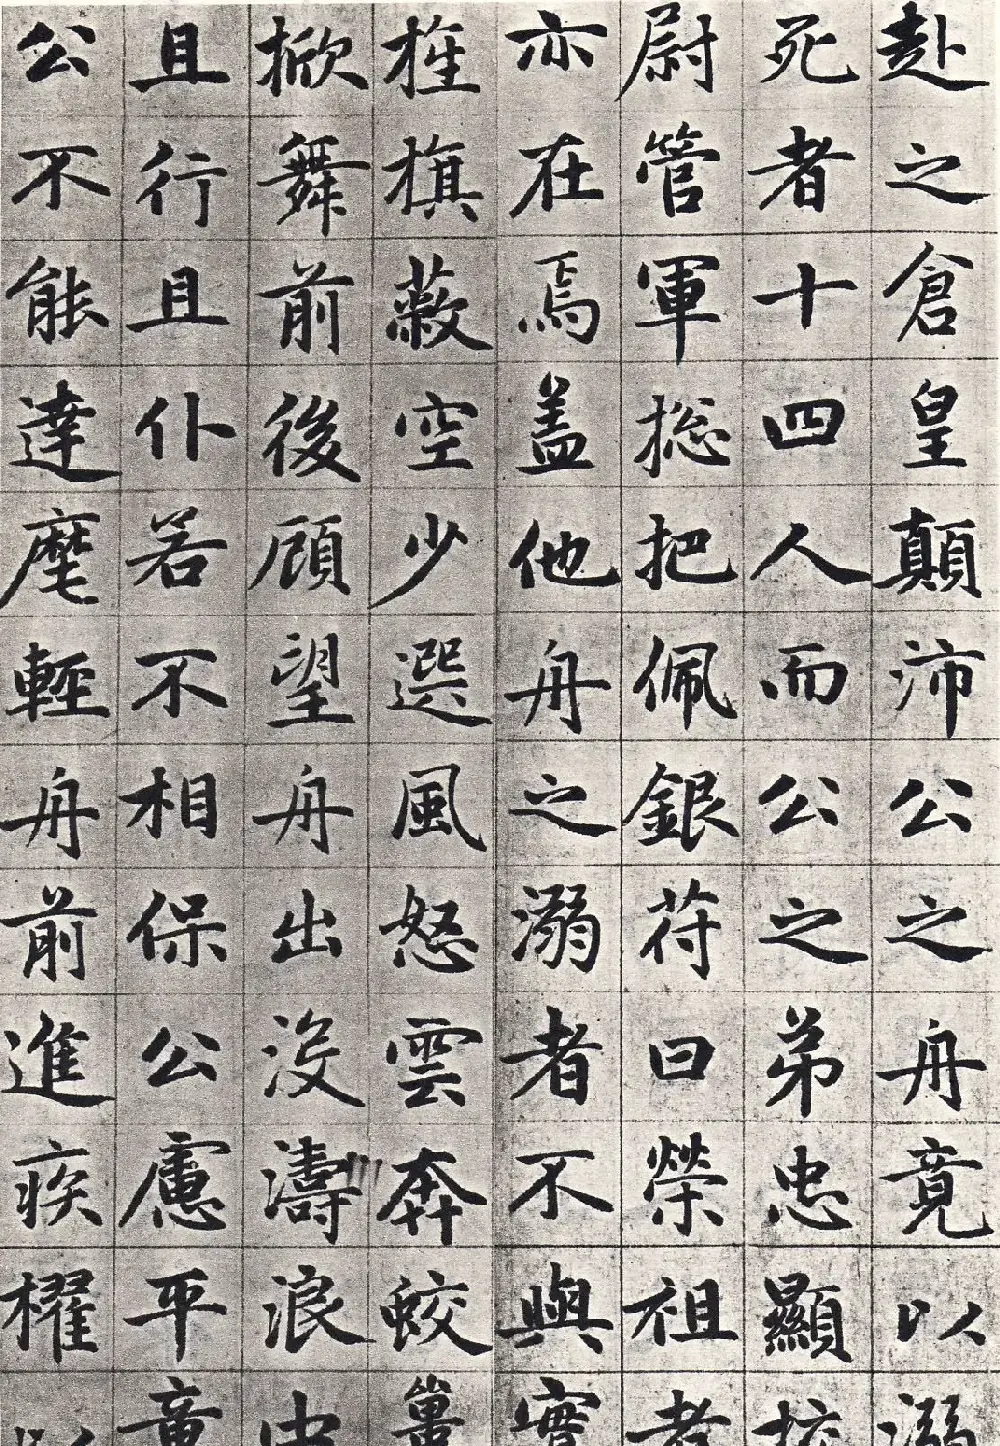 赴之倉皇顛沛公之舟竟以溺
死者十四人而公之弟忠顯
尉管軍総把佩銀符曰榮祖者
亦在焉盖他舟之溺者不與
旌旗蔽空少選風怒雲奔蛟
掀舞前後顧望舟出没濤浪中
且行且仆若不相保公慮平章
公不能達麾輕舟前進疾櫂以